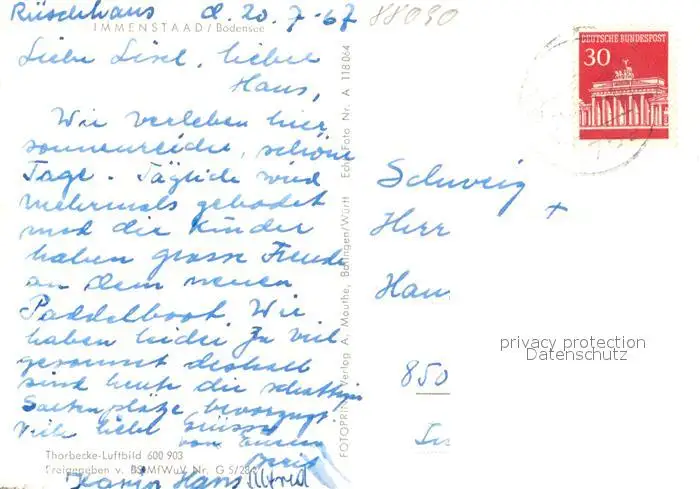 Rüschhaus d. 20.7.67
88090
IMMENSTAAD/Bodensee
Liebe Lisel, lieber
Hans,
Wir verleben hier
sonnenreiche, schöne
Tage. Täglich wird
mehrmals gebadet
und die Kinder
haben grosse Freude
an dem neuen
Paddelboot. Wir
haben leider zu viel
gesonnt deshalb
sind heute die schattigen
Seitenplätze bevorzugt
Viele liebe Grüsse
von Euren
Karin Hans Alfred
Thorbecke-Luftbild 600 903
Freigegeben v. BStMfWuV Nr. G 5/28
FOTOPRINT Verlag A. Mouthe, Balingen/Württ Echt Foto Nr. A 118 064
DEUTSCHE BUNDESPOST
30
Schweiz
Herr
Han
850
privacy protection
Datenschutz